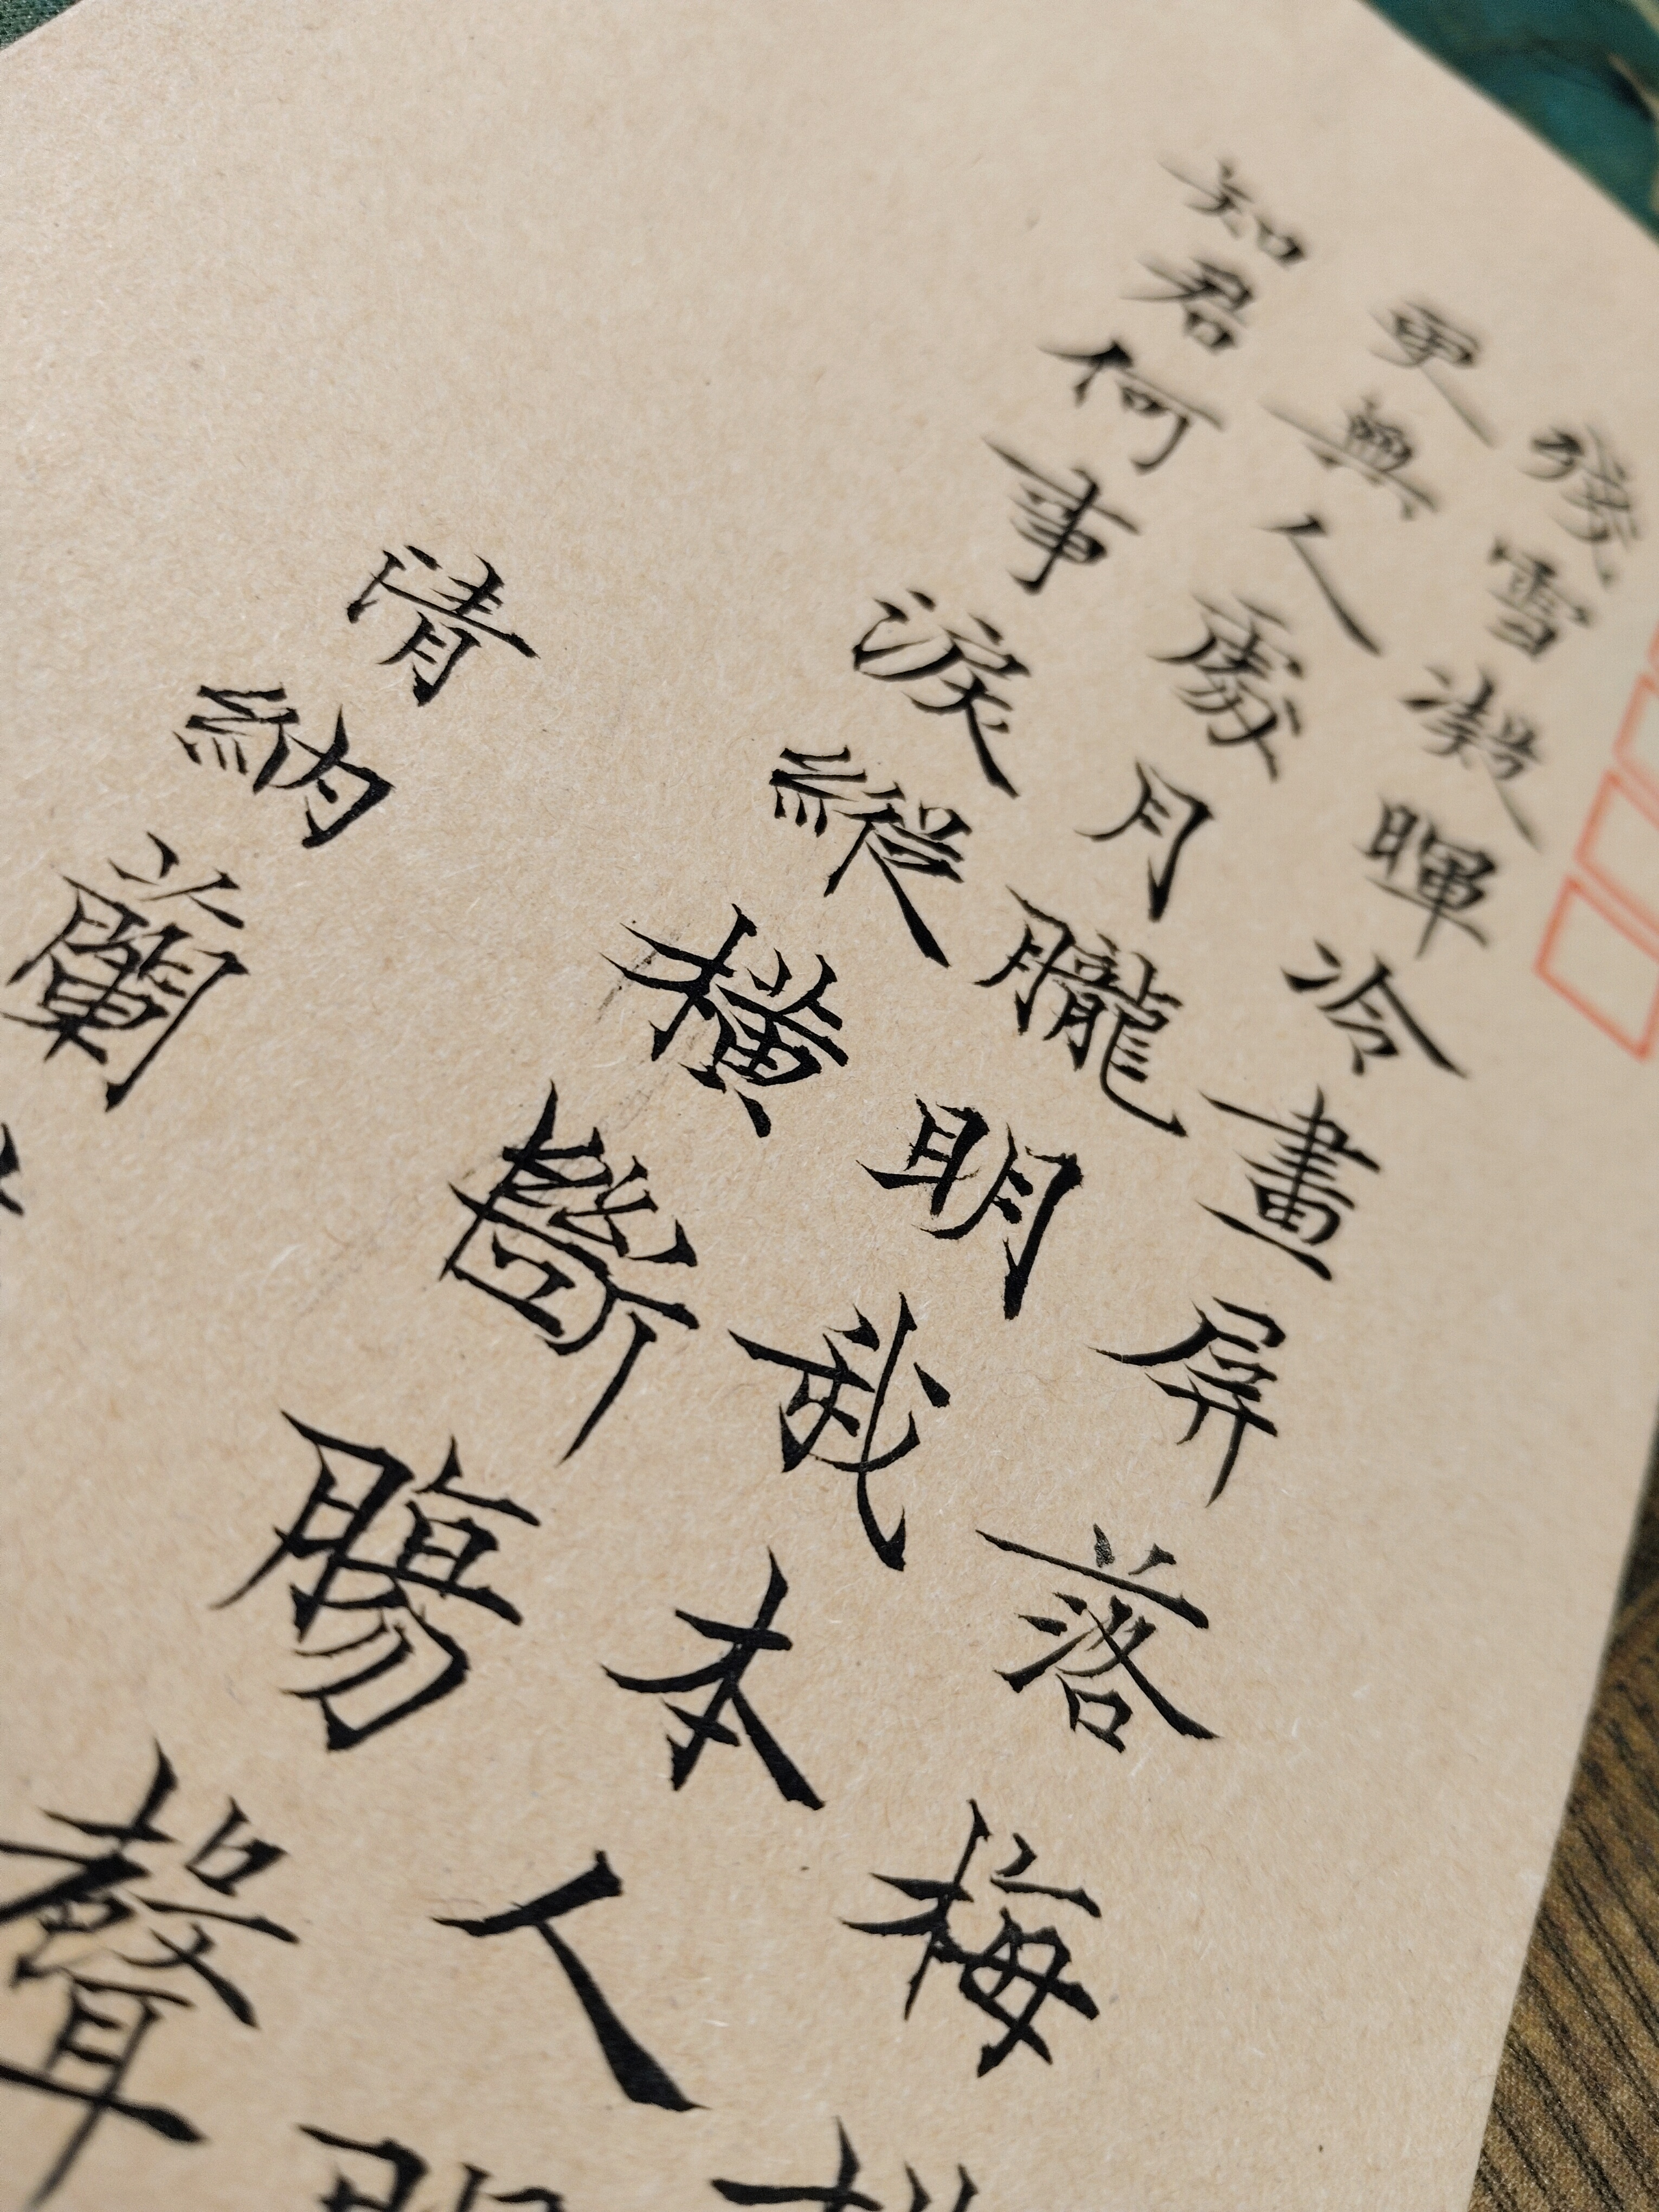 殘雪凝暉冷畫屏落梅橫
更無人處月朧明我本人間
知君何事淚縱橫斷腸聲
清納蘭